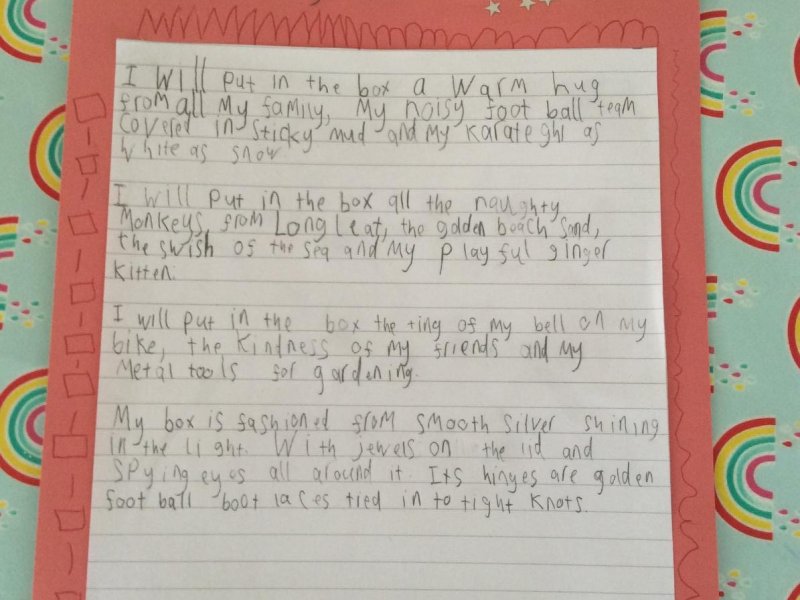 I will put in the box a warm hug
from all my family, my noisy foot ball team
covered in sticky mud and my karate ghi as
white as snow
I will put in the box all the naughty
monkeys from Longleat, the golden beach sand,
the swish of the sea and my playful ginger
kitten.
I will put in the box the ting of my bell on my
bike, the kindness of my friends and my
metal tools for gardening.
My box is fashioned from smooth silver shining
in the light. With jewels on the lid and
spying eyes all around it. Its hinges are golden
foot ball boot laces tied in to tight knots.